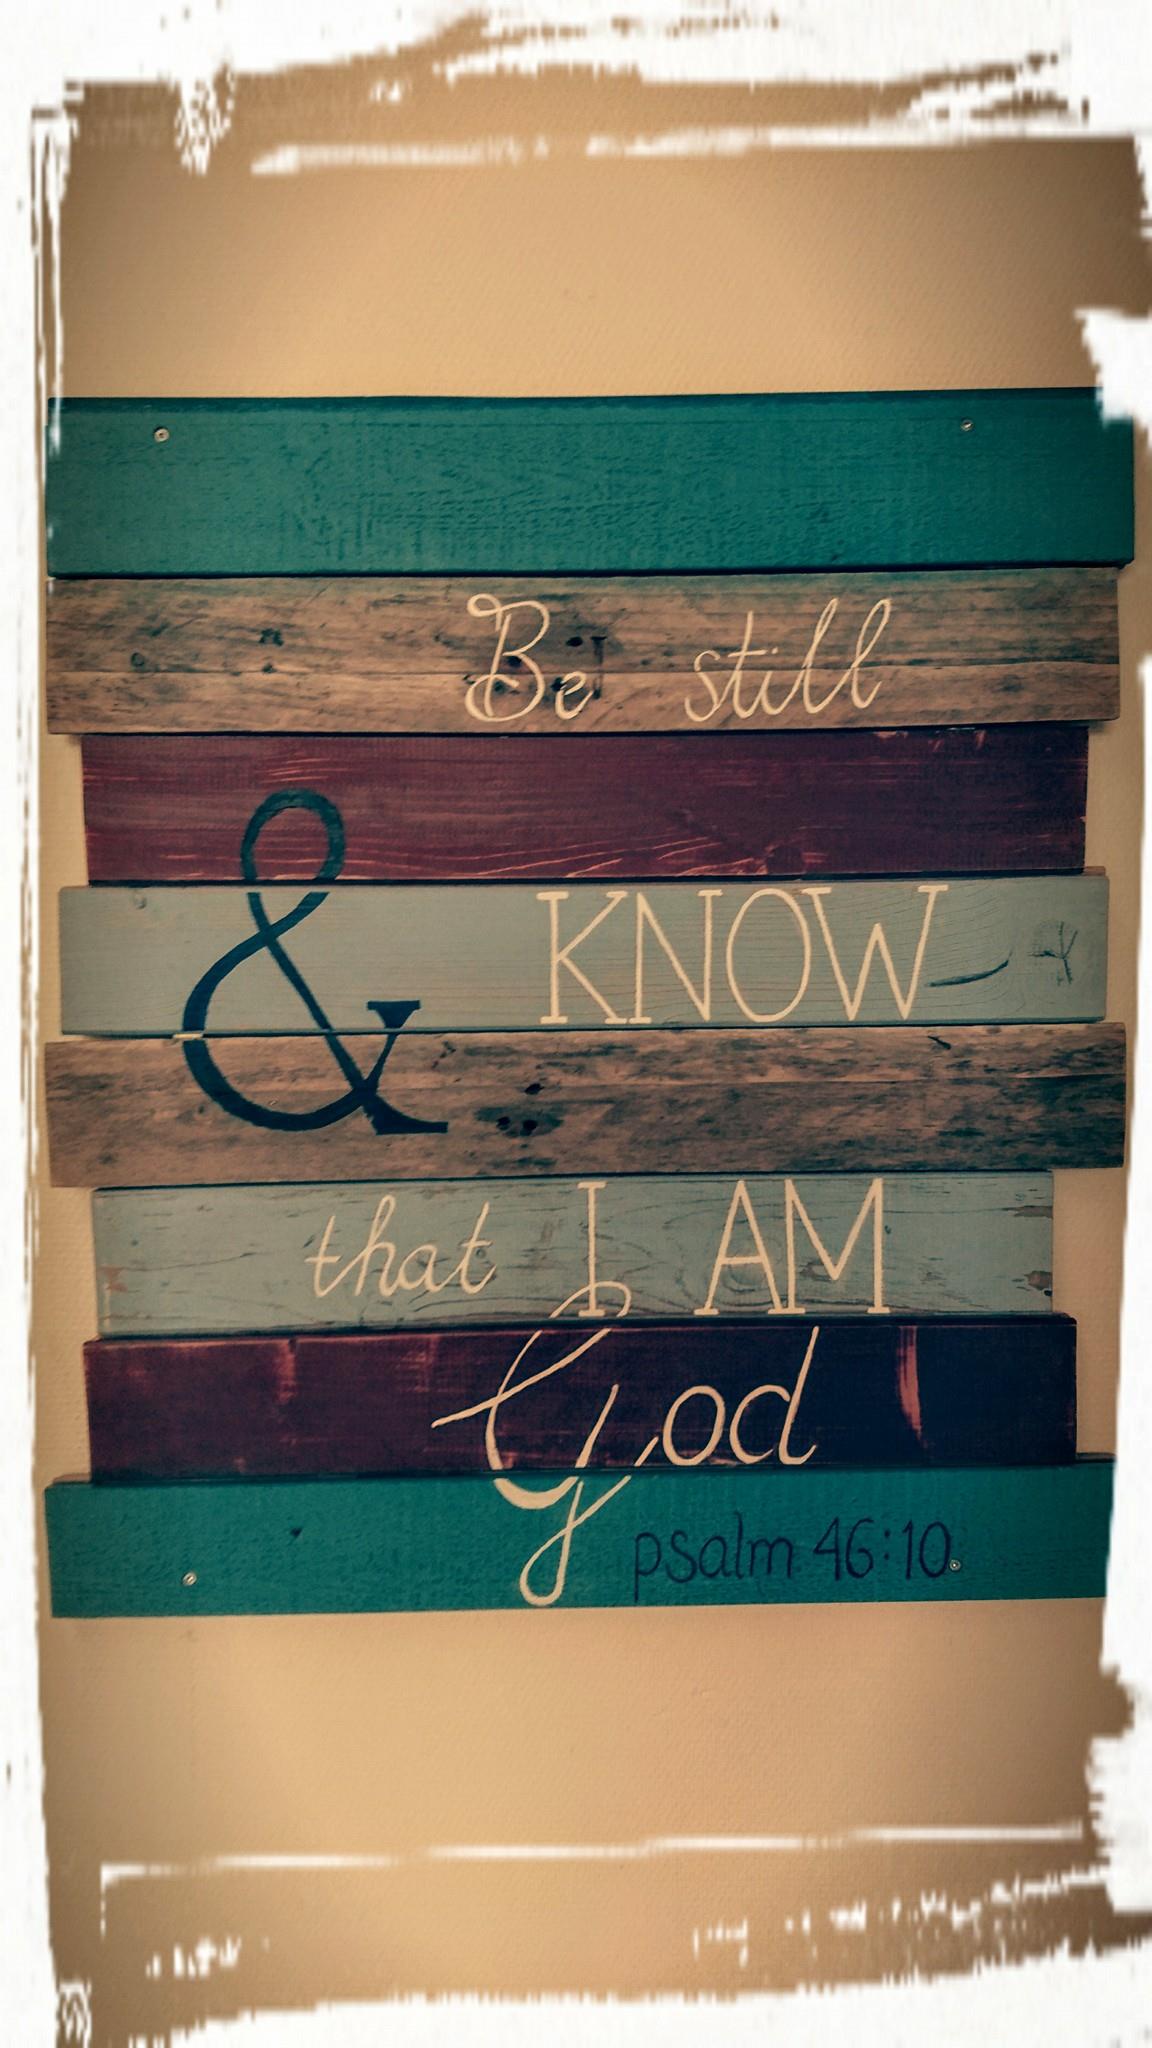 Be still
& KNOW
that I AM
God
psalm 46:10